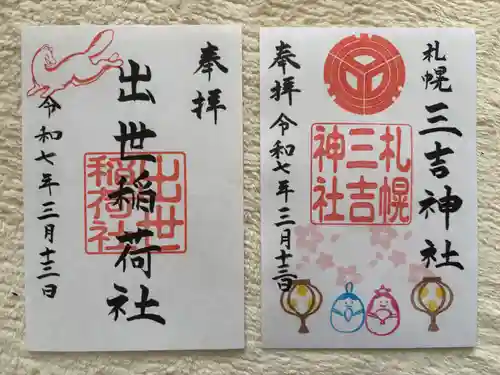 奉拝
出世稲荷社
令和七年三月十三日
出世
稲荷社
札幌
三吉神社
奉拝
令和七年三月十三日
札幌
三吉
神社